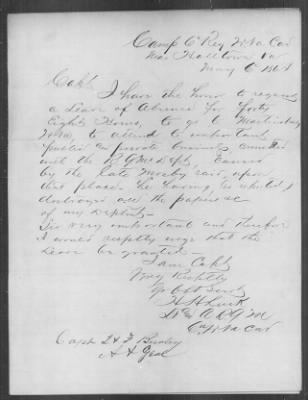 Camp 6" Reg W Va Cav
Near Halltown Va
May 6" 1864
Capt.
I have the honor to request
a Leave of Absence for forty
Eight Hours, to go to Martinsburg
W Va, to attend to important
public & private business connected
with the Dept, caused
by the late Mosby raid, upon
that place. He having
destroyed all the papers &c
of my
Its very important and therefore
I would respctfly urge that the
Leave be granted
I am Capt.
Very Respctfly
Yr Obt Servt
H H
A Q M
W Va Cav
Capt
A A Genl